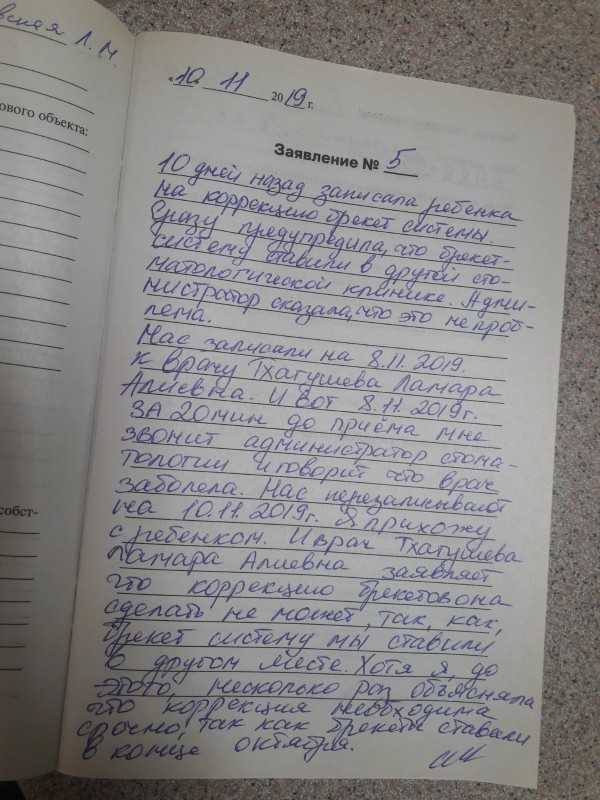 вская Л. М.
ового объекта:
собст-
"10" 11 2019 г.
Заявление № 5
10 дней назад записала ребенка
на коррекцию брекет системы.
Сразу предупредила, что брекет-
систему ставили в другой сто-
матологической клинике. Адми-
нистратор сказала, что это не проб-
лема.
Нас записали на 8.11. 2019.
к врачу Тхагушева Ламара
Алиевна. И вот 8.11. 2019г.
за 20 мин до приёма мне
звонит администратор стома-
тологии и говорит что врач
заболела. Нас перезаписывают
на 10.11. 2019г. Я прихожу
с ребенком. И врач Тхагушева
Ламара Алиевна заявляет
что коррекцию брекетов она
сделать не может, так, как,
брекет систему мы ставили
в другом месте. Хотя я, до
этого, несколько раз объясняла
что коррекция необходима
срочно, так как брекеты ставили
в конце октября.